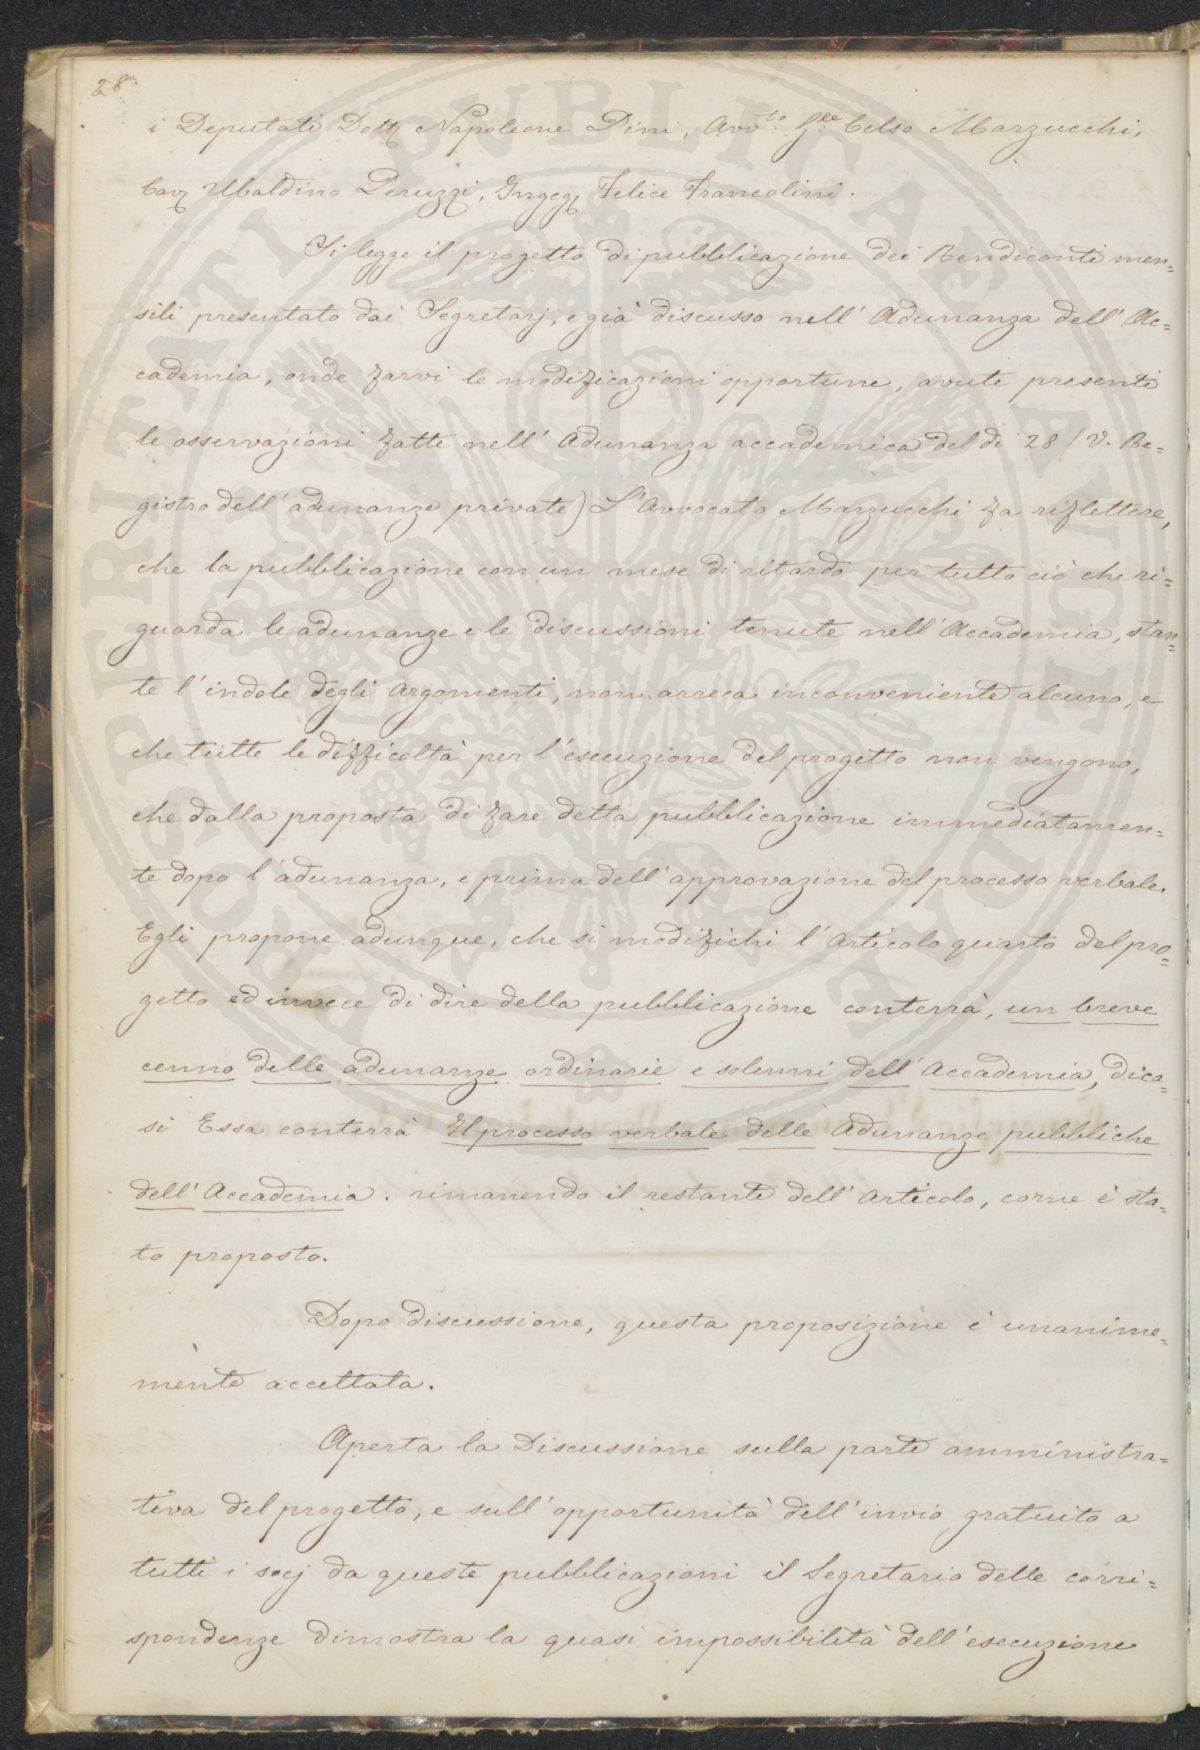 28
i Deputati Dott. Napoleone Pini, Avv.to Celso Marzucchi,
Cav. Ubaldino Peruzzi, Ingeg. Felice Francolini.
Si legge il progetto di pubblicazione dei Rendiconti men=
sili presentato dai Segretarj, e già discusso nell' Adunanza dell' Ac=
cademia, onde farvi le modificazioni opportune, avute presenti
le osservazioni fatte nell' Adunanza accademica del dì 28 (V. Re=
gistro dell' adunanze private) L'Avvocato Marzucchi fa riflettere,
che la pubblicazione con un mese di ritardo per tutto ciò che ri=
guarda le adunanze e le discussioni tenute nell' Accademia, stan=
te l'indole degli argomenti, non arreca inconveniente alcuno, e
che tutte le difficoltà per l'esecuzione del progetto non vengono,
che dalla proposta di fare detta pubblicazione immediatamen=
te dopo l'adunanza, e prima dell' approvazione del processo verbale.
Egli propone adunque, che si modifichi l'Articolo quarto del pro=
getto ed invece di dire della pubblicazione conterrà, un breve
cenno delle adunanze ordinarie e solenni dell' Accademia, dica=
si Essa conterrà Il processo verbale delle Adunanze pubbliche
dell' Accademia. rimanendo il restante dell' Articolo, come è sta=
to proposto.
Dopo discussione, questa proposizione è unanime=
mente accettata.
Aperta la Discussione sulla parte amministra=
tiva del progetto, e sull' opportunità dell' invio gratuito a
tutti i socj da queste pubblicazioni il Segretario delle corri=
spondenze dimostra la quasi impossibilità dell' esecuzione